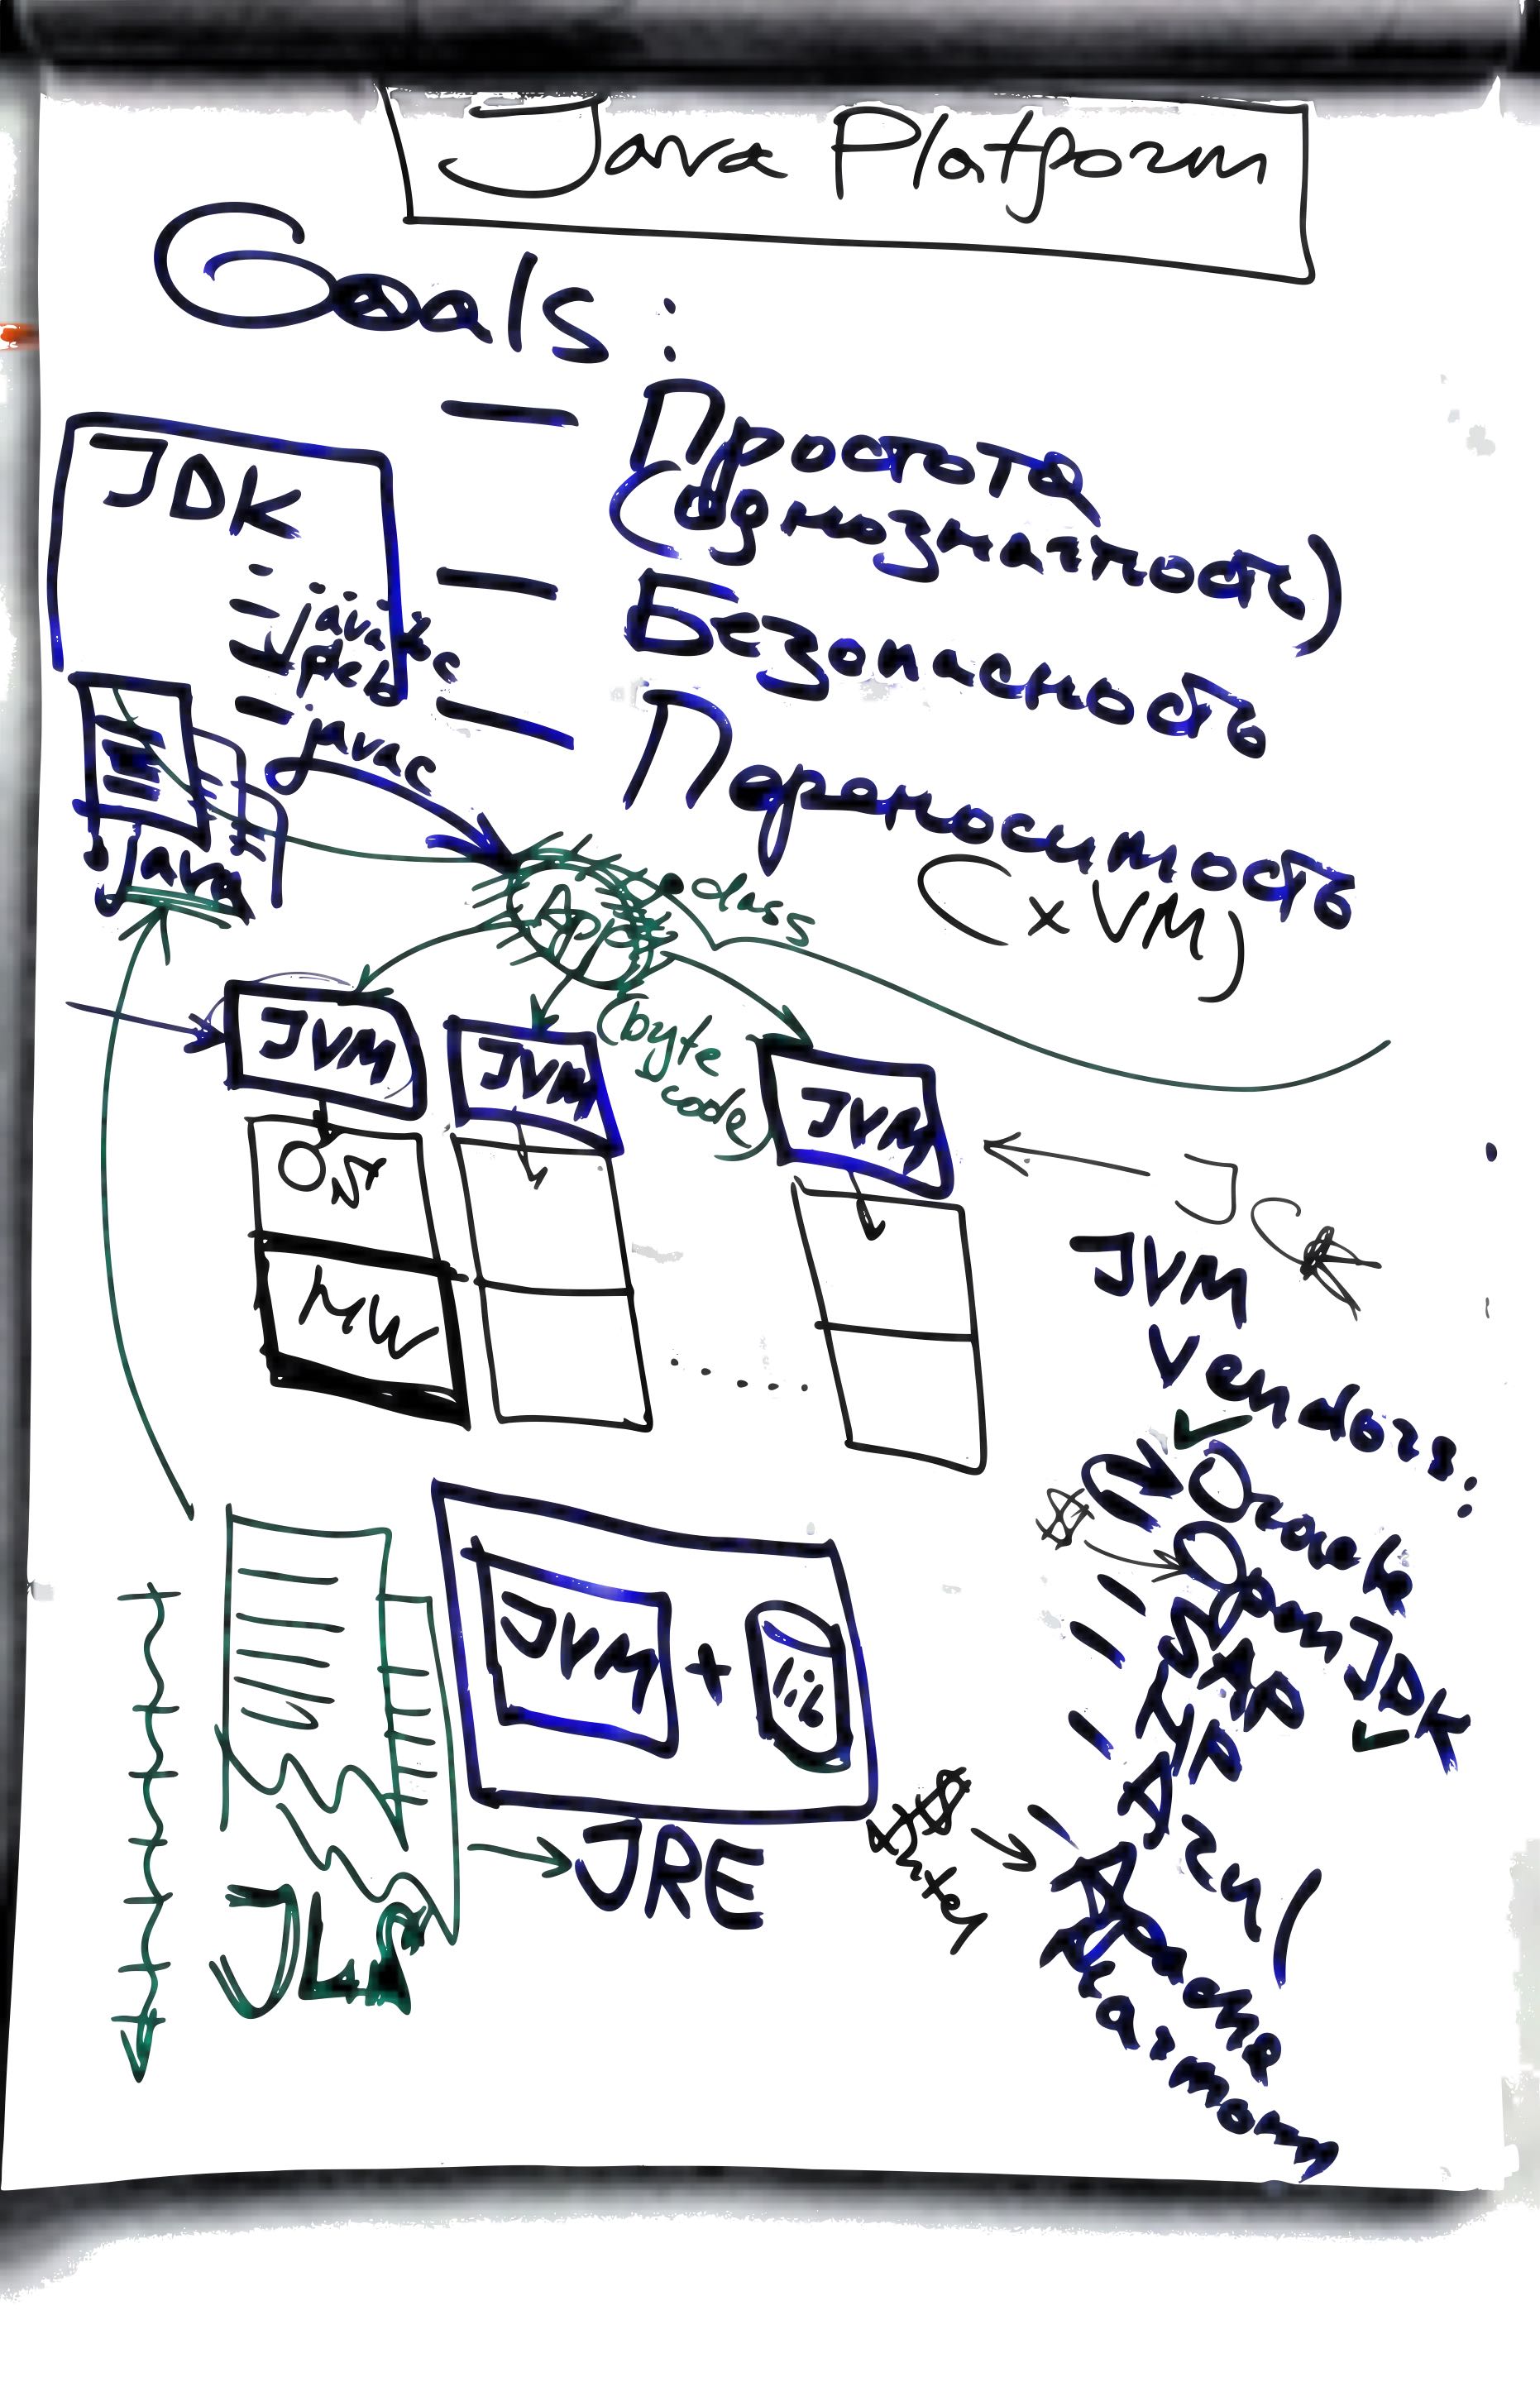 Java Platform
Goals:
— Простота
(однозначность)
— Безопасность
— Переносимость
(xVM)
JDK
- javac
.java
App
.class
(byte
code)
JVM
JVM
JVM
OS
HW
JCK
JVM
Vendors:
- Oracle
- OpenJDK
- SAP
- Azul
- Apache
Harmony
$
$$
Intel
JVM + lib
JRE
JLS